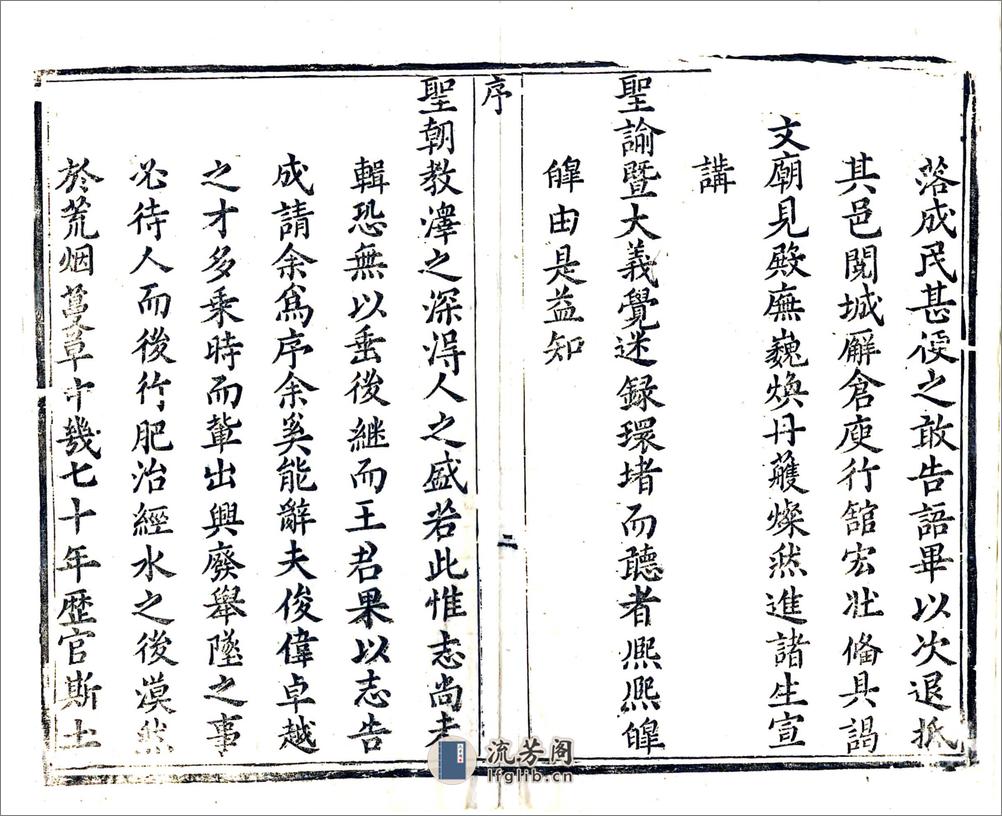 落成民甚便之敢告語畢以次退抵
其邑閱城廨倉庾行舘宏壯偹具謁
文廟見殿廡巍煥丹雘燦然進諸生宣
講
聖諭暨大義覺迷録環堵而聽者熈熈皥
皥由是益知
序
二
聖朝教澤之深得人之盛若此惟志尚未
輯恐無以垂後継而王君果以志告
成請余爲序余奚能辭夫俊偉卓越
之才多乗時而輩出興廢舉墜之事
必待人而後行肥治經水之後漠然
於荒烟蔓草中幾七十年歴官斯土
流芳阁
lfglib.cn